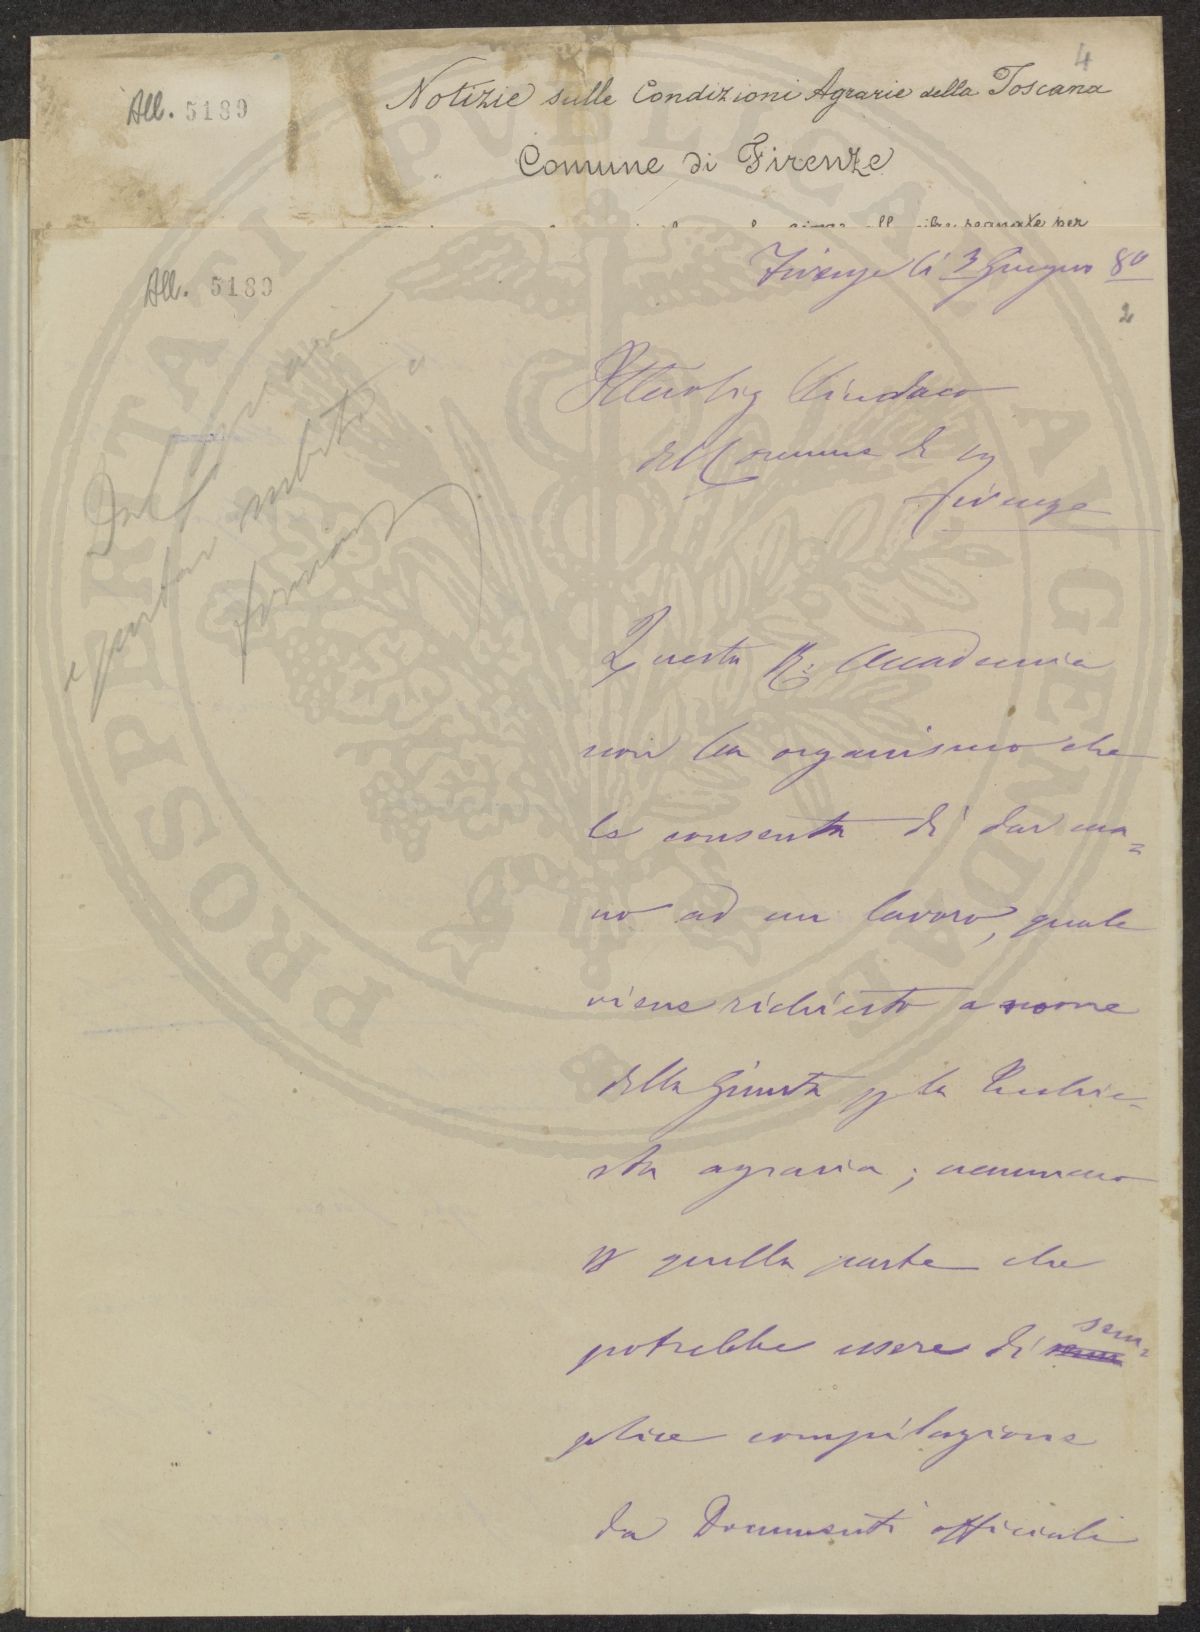 4
All. 5189
Notizie sulle Condizioni Agrarie della Toscana
Comune di Firenze
segnate per
Firenze li 3 Giugno 80
2
All. 5189
subito
Illustrig Sindaco
del Comune di
Firenze
Questa R. Accademia
non ha organismo che
le consenta di dar ma=
no ad un lavoro, quale
viene richiesto a nome
della Giunta p la Inchie=
sta agraria; nemmeno
p quella parte che
potrebbe essere di sem=
plice compilazione
da Documenti officiali
PROSPERITATI PUBLICAE AUGENDAE